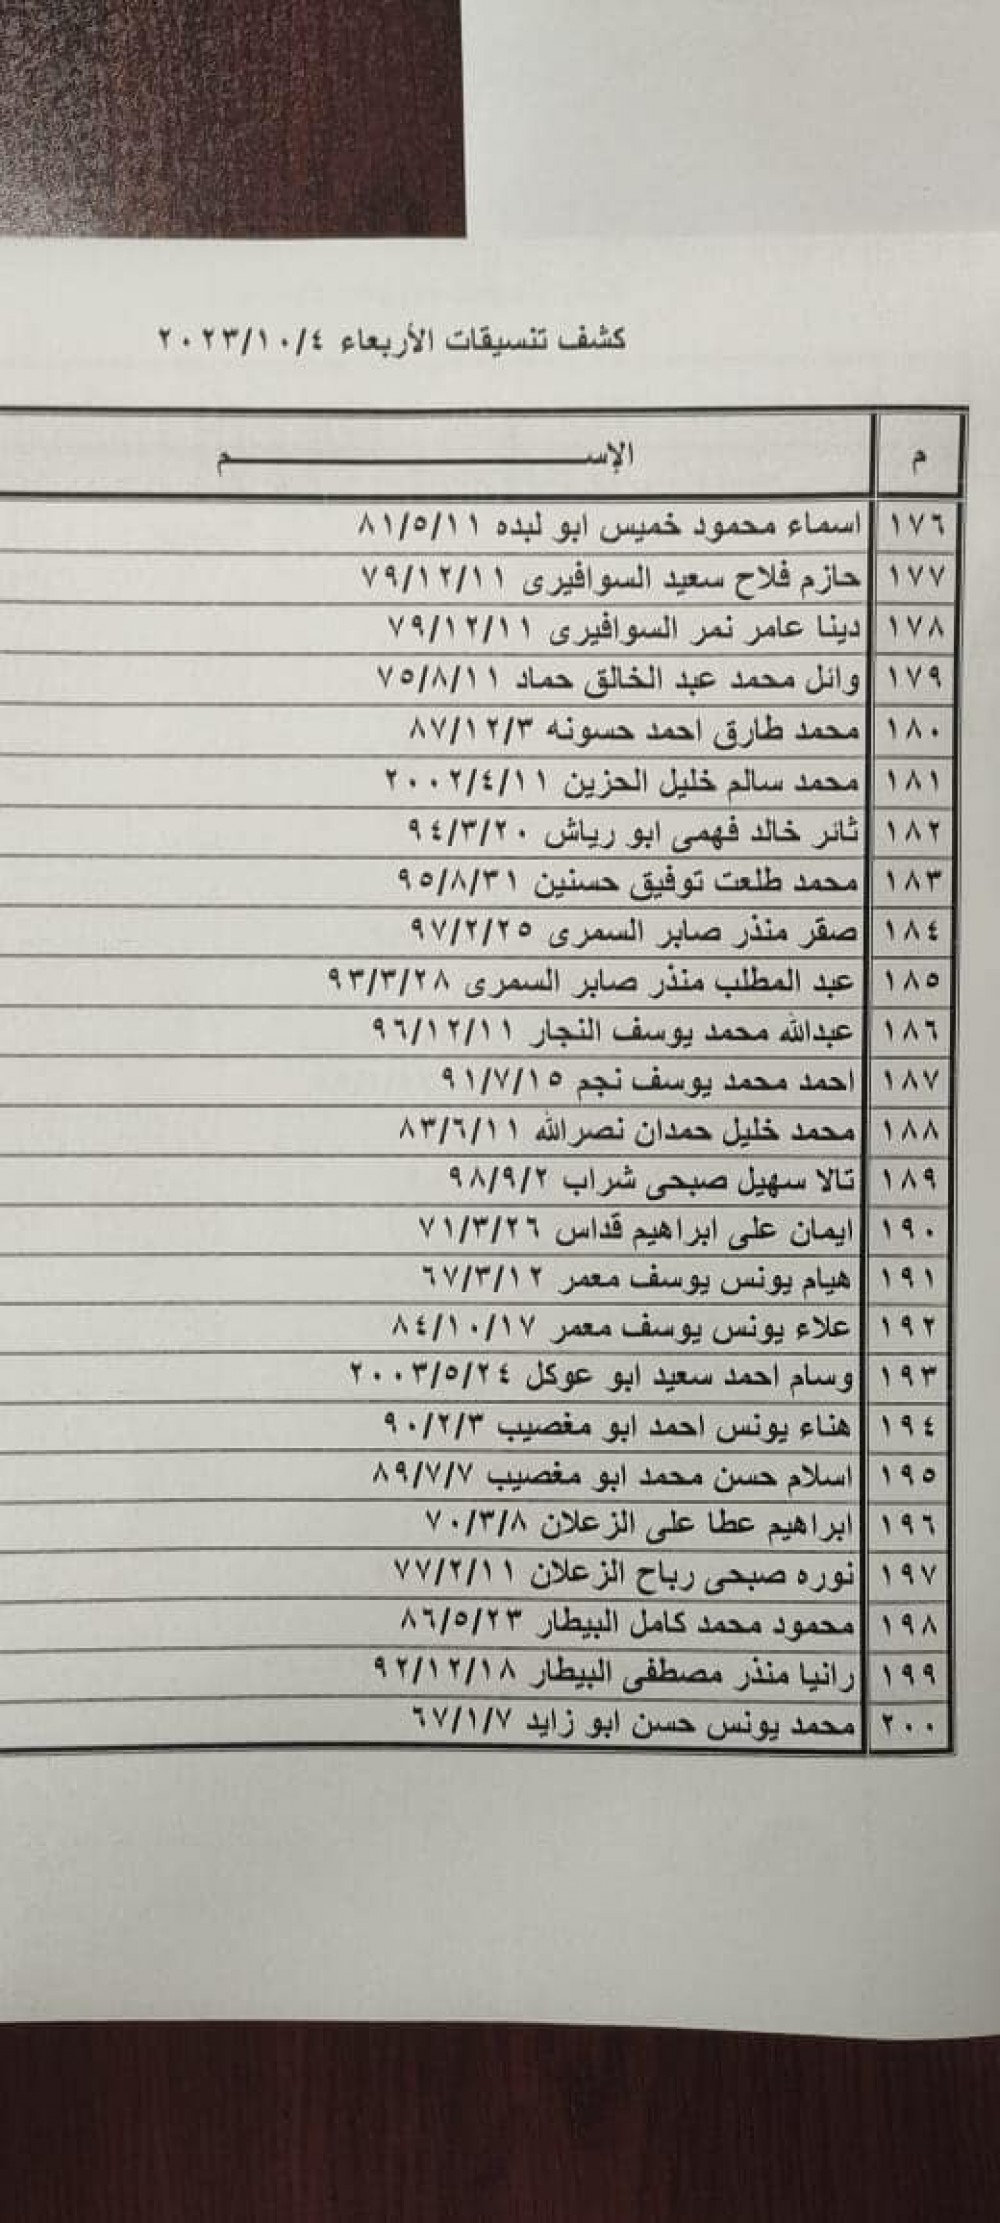 كشف تنسيقات الأربعاء ٢٠٢٣/١٠/٤
م الإســـــــــــــــــــــــم
١٧٦ اسماء محمود خميس ابو لبده ٨١/٥/١١
١٧٧ حازم فلاح سعيد السوافيرى ٧٩/١٢/١١
١٧٨ دينا عامر نمر السوافيرى ٧٩/١٢/١١
١٧٩ وائل محمد عبد الخالق حماد ٧٥/٨/١١
١٨٠ محمد طارق احمد حسونه ٨٧/١٢/٣
١٨١ محمد سالم خليل الحزين ٢٠٠٢/٤/١١
١٨٢ ثائر خالد فهمى ابو رياش ٩٤/٣/٢٠
١٨٣ محمد طلعت توفيق حسنين ٩٥/٨/٣١
١٨٤ صقر منذر صابر السمرى ٩٧/٢/٢٥
١٨٥ عبد المطلب منذر صابر السمرى ٩٣/٣/٢٨
١٨٦ عبدالله محمد يوسف النجار ٩٦/١٢/١١
١٨٧ احمد محمد يوسف نجم ٩١/٧/١٥
١٨٨ محمد خليل حمدان نصرالله ٨٣/٦/١١
١٨٩ تالا سهيل صبحى شراب ٩٨/٩/٢
١٩٠ ايمان على ابراهيم قداس ٧١/٣/٢٦
١٩١ هيام يونس يوسف معمر ٦٧/٣/١٢
١٩٢ علاء يونس يوسف معمر ٨٤/١٠/١٧
١٩٣ وسام احمد سعيد ابو عوكل ٢٠٠٣/٥/٢٤
١٩٤ هناء يونس احمد ابو مغصيب ٩٠/٢/٣
١٩٥ اسلام حسن محمد ابو مغصيب ٨٩/٧/٧
١٩٦ ابراهيم عطا على الزعلان ٧٠/٣/٨
١٩٧ نوره صبحى رباح الزعلان ٧٧/٢/١١
١٩٨ محمود محمد كامل البيطار ٨٦/٥/٢٣
١٩٩ رانيا منذر مصطفى البيطار ٩٢/١٢/١٨
٢٠٠ محمد يونس حسن ابو زايد ٦٧/١/٧